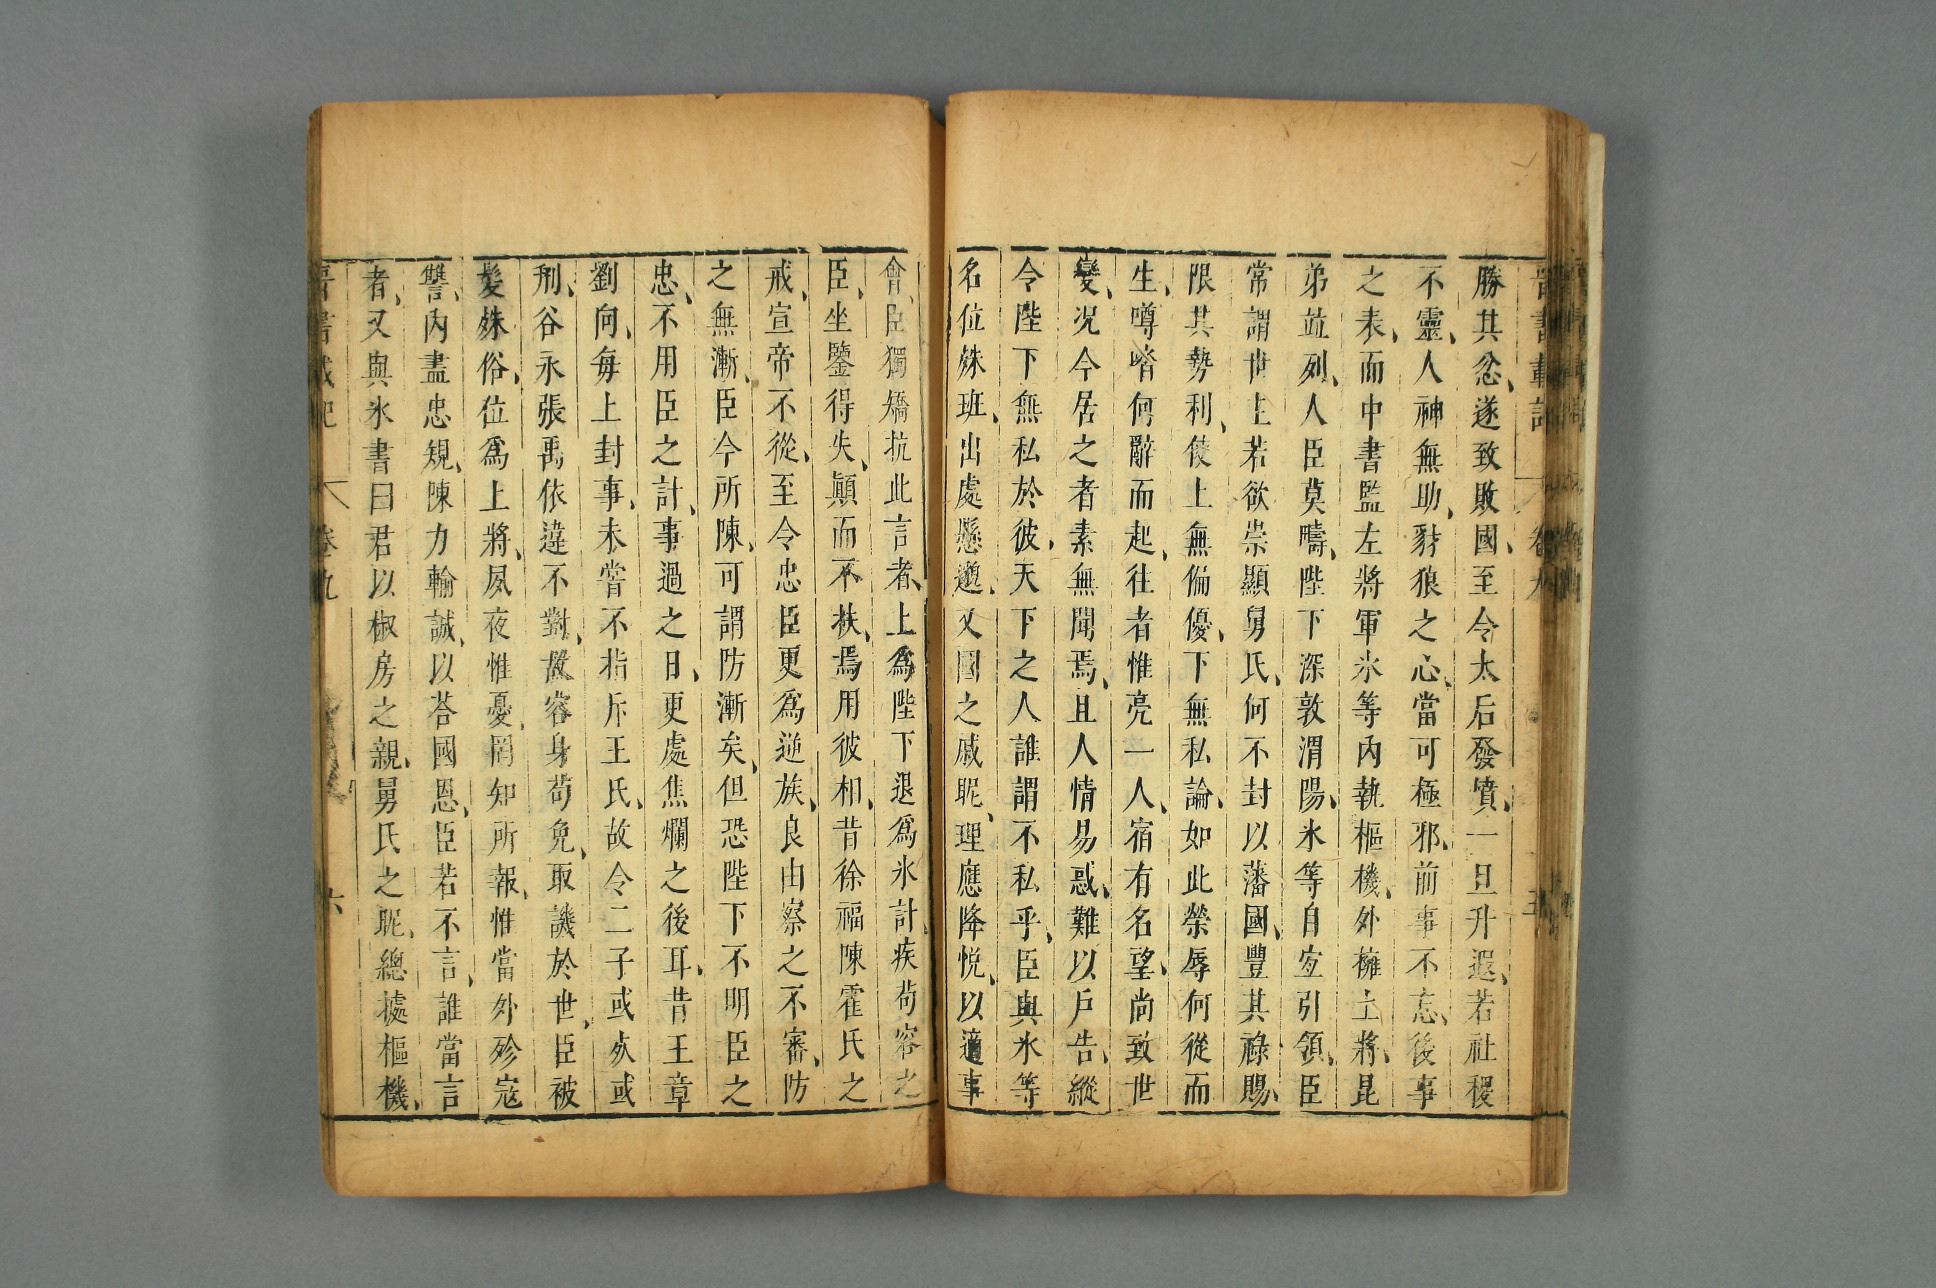 勝其忿、遂致敗國、至令太后發憤、一旦升遐、若社稷
不靈、人神無助、豺狼之心、當可極邪、前事不忘、後事
之表、而中書監左將軍氷等內執樞機、外擁上將、昆
弟並列、人臣莫疇、陛下深敦渭陽、氷等自宜引領、臣
常謂世主若欲崇顯舅氏、何不封以藩國、豐其祿賜、
限其勢利、使上無偏優、下無私論、如此榮辱何從而
生、噂㳫何辭而起、往者惟亮一人、宿有名望、尚致世
變、况今居之者素無聞焉、且人情易惑、難以戶告、縱
令陛下無私於彼、天下之人誰謂不私乎、臣與氷等
名位殊班、出處懸邈、又國之戚昵、理應降悅、以適事
會、臣獨矯抗此言者、上爲陛下退爲氷計、疾苟容之
臣、坐鑒得失、顛而不扶、焉用彼相、昔徐福陳霍氏之
戒、宣帝不從、至令忠臣更爲逆族、良由察之不審、防
之無漸、臣今所陳、可謂防漸矣、但恐陛下不明臣之
忠、不用臣之計、事過之日、更處焦爛之後耳、昔王章
劉向每上封事、未嘗不指斥王氏、故令二子或死或
刑、谷永張禹依違不對、故容身苟免、取譏於世、臣被
髮殊俗、位爲上將、夙夜惟憂、罔知所報、惟當外殄寇
讐、內盡忠規、陳力輸誠、以荅國恩、臣若不言、誰當言
者、又與氷書曰君以椒房之親、舅氏之昵、總據樞機、
晋書載記 卷九 六